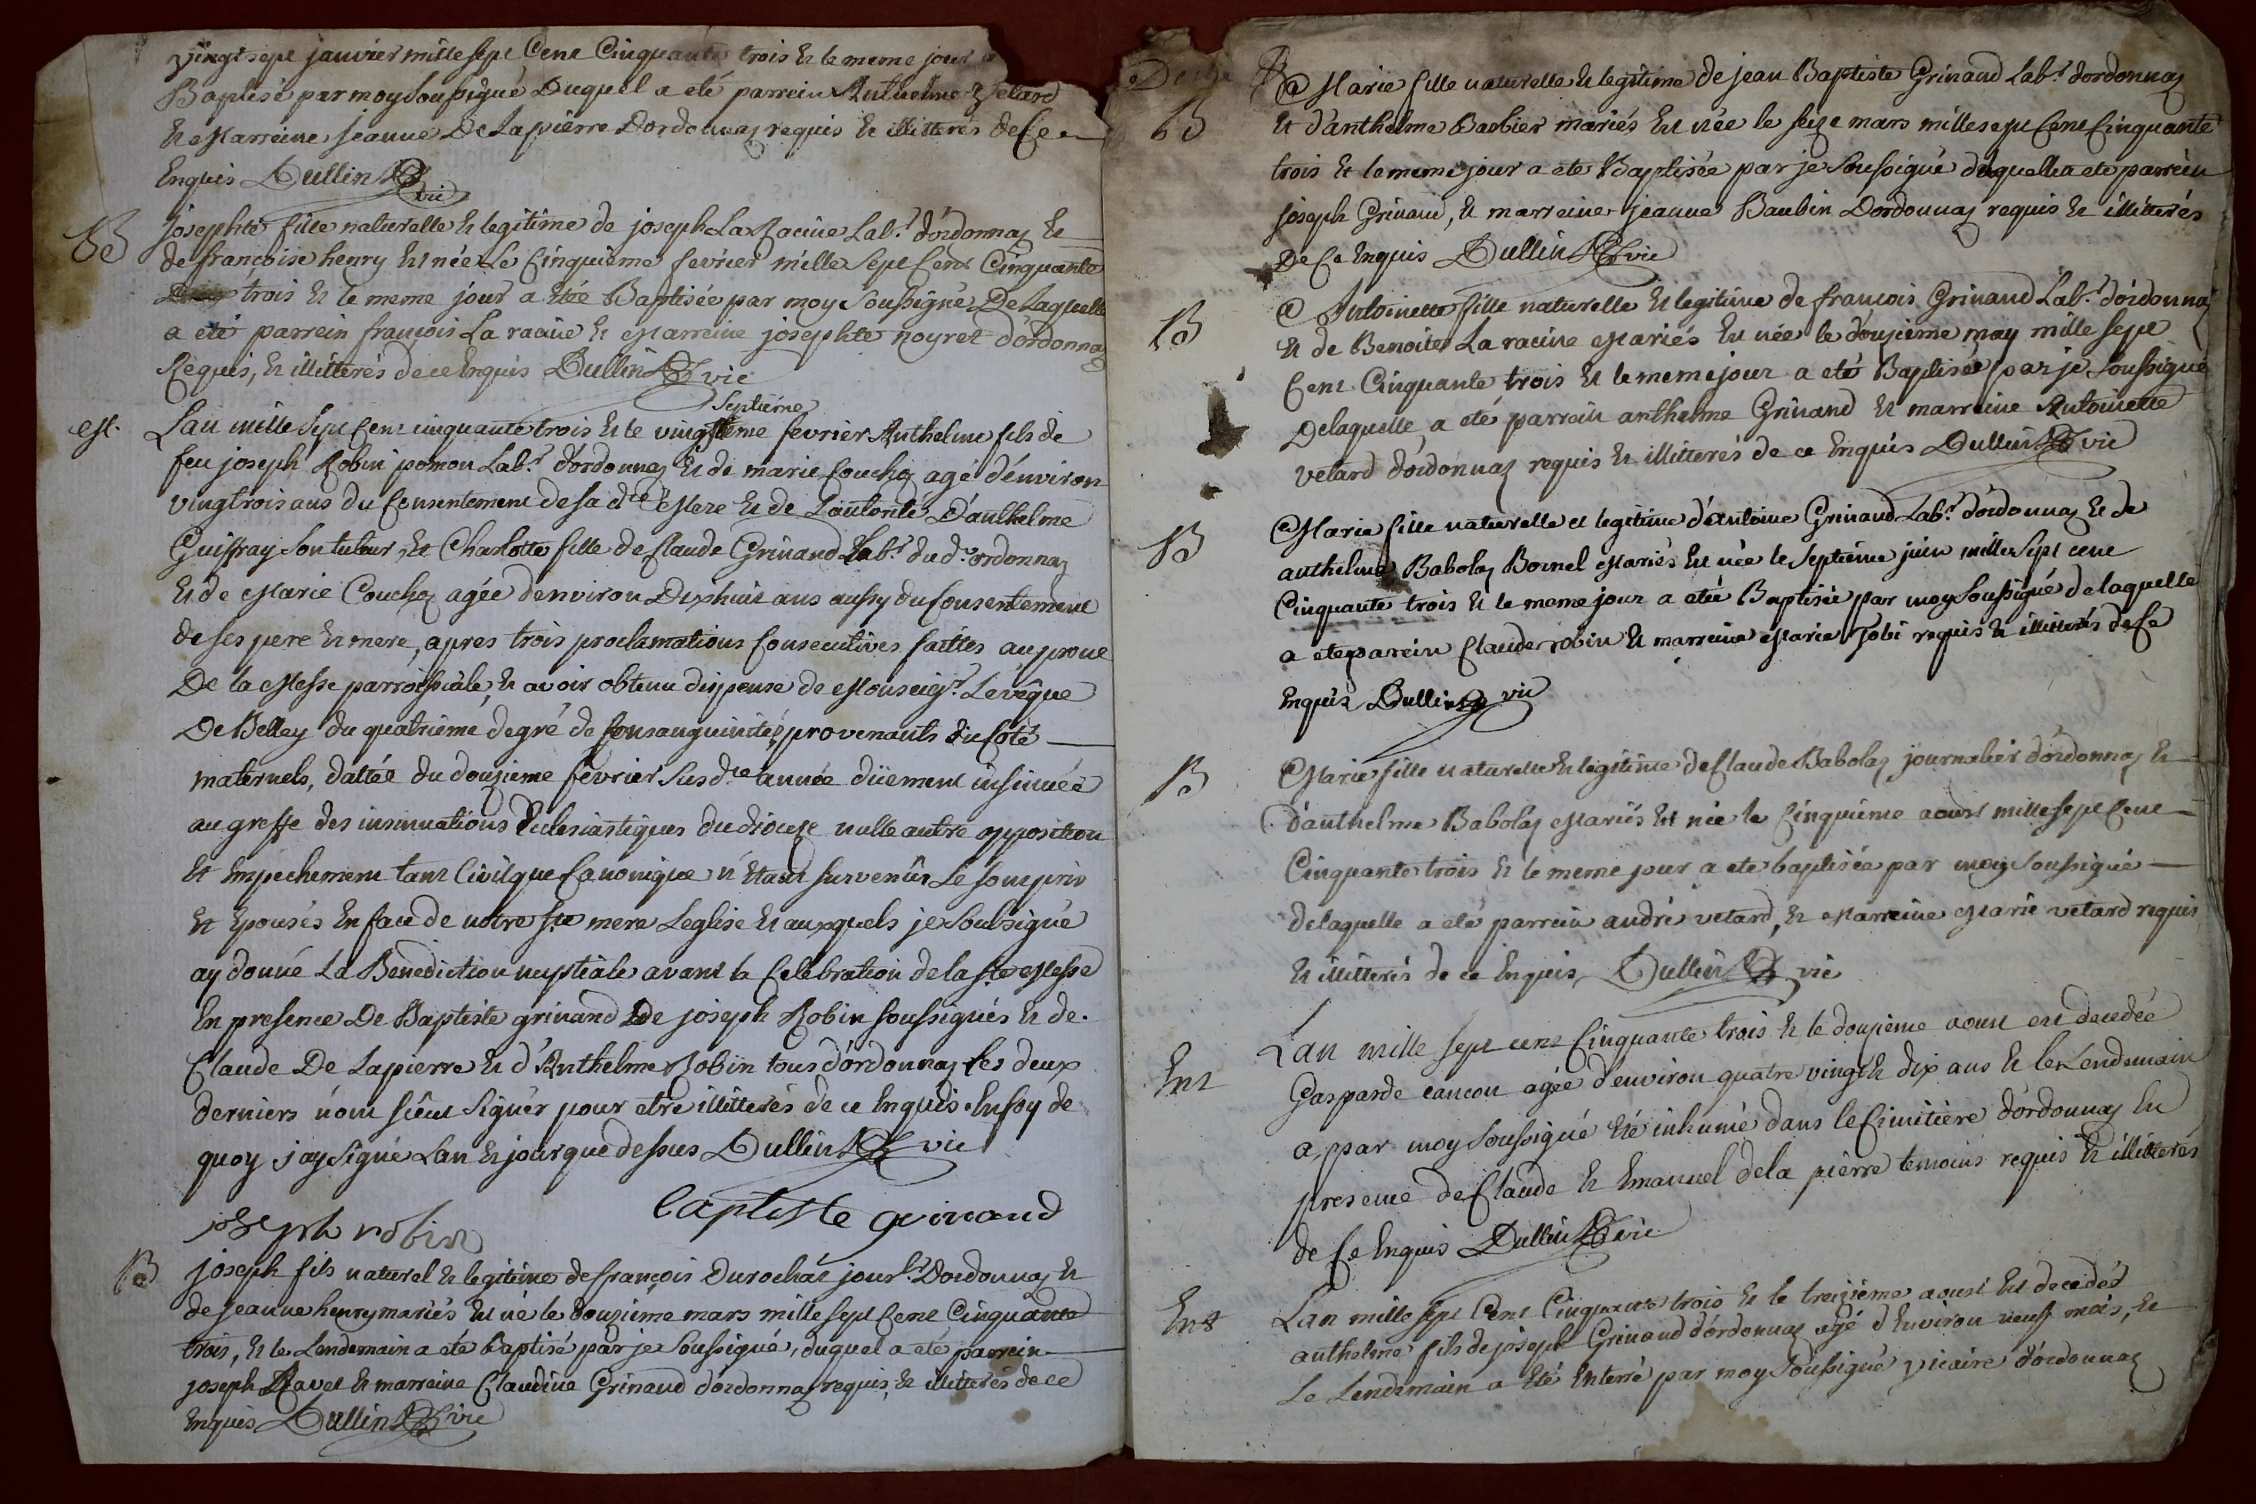 vingt sept janvier mille sept Cent Cinquante trois et le meme jour a
Baptisé par moy soussigné Duquel a eté parrein Anthelme Velard
et Marreine jeanne De Lapierre Dordonnaz requis et illitterés de Ce
Enquis Dullin vic
B
josephte fille naturelle et legitime de joseph La Racine Lab.r d'ordonnaz et
de françoise henry est née Le Cinquième fevrier mille sept Cent Cinquante
trois et le meme jour a etée Baptisée par moy soussigné De Laquelle
a eté parrein françois La racine et Marreine josephte noyret d'ordonnaz
Requis, et illitterés de ce Enquis Dullin vic
septième
L'an mille sept Cent cinquante trois et le vingt fevrier Anthelme fils de
feu joseph Robin pomon Lab.r d'ordonnaz et de marie Couchoz agé d'environ
vingt trois ans du Consentement de sa d.te Mere et de L'autorité D'anthelme
Guiffray son tuteur, et Charlotte fille de Claude Grinand Lab.r du d. ordonnaz
et de Marie Couchoz agée denviron Dixhuit ans aussy du Consentement
de ses pere et mere, apres trois proclamations Consecutives faittes au prone
De la Messe parroissiale, et avoir obtenu dispense de Monseig.r L'evêque
De Belley du quatrième degré de Consanguinité provenants du Coté
maternels, dattée du douzieme fevrier susd.te année düement insinuée
au greffe des insinuations Eclesiastiques du dioceze nulle autre opposition
et Empechement tant Civil que Canonique n'etant survenûs Se sont pris
et Epousés En face de notre s.te mere L'eglise et auxquels je soussigné
ay donné La Benediction nuptiale avant la Celebration de la s.te Messe
En presence De Baptiste grinand de joseph Robin soussignés et de
Claude De Lapierre et d'Anthelme Robin tous d'ordonnaz les deux
derniers n'ont sceu signer pour etre illitterés de ce Enquis. En foy de
quoy j'ay signé L'an et jour que dessus Dullin vic
joseph robin
baptiste grinand
B
joseph fils naturel et legitime de françois Durochat jour.r Dordonnaz et
de jeanne henry mariés est né le douzieme mars mille sept Cent Cinquante
trois, et le Lendemain a eté baptisé par je soussigné, duquel a eté parrein
joseph Ravet et marreine Claudine Grinand d'ordonnaz requis, et illitterés de ce
enquis Dullin vic
B
Marie fille naturelle et legitime de jean Baptiste Grinand Lab.r dordonnaz
et d'anthelme Barbier mariés est née le seize mars mille sept Cent Cinquante
trois et le meme jour a eté Baptisée par je soussigné de laquelle a eté parrein
joseph Grinand, et marreine jeanne Baubin Dordonnaz requis et illitterés
De Ce Enquis Dullin vic
B
Antoinette fille naturelle et legitime de francois Grinand Lab.r d'ordonnaz
et de Benoite La racine Mariés est née le douzieme may mille sept
Cent Cinquante trois et le meme jour a eté Baptisée par je soussigné
De laquelle a eté parrein anthelme Grinand et marreine Antoinette
velard d'ordonnaz requis et illitterés de ce Enquis Dullin vic
B
Marie fille naturelle et legitime d'antoine Grinand Lab.r d'ordonnaz et de
anthelme Babolaz Bornel Mariés est née le septieme juin mille sept cent
Cinquante trois et le meme jour a etée Baptisée par moy soussigné de laquelle
a eté parein Claude robin et marreine Marie Gobi requis et illitterés de Ce
enquis Dullin vic
B
Marie fille naturelle et legitime de Claude Babolaz journalier d'ordonnaz et
d'anthelme Babolaz Mariés est née le Cinquieme aoust mille sept Cent
Cinquante trois et le meme jour a eté baptisée par moy soussigné
de laquelle a eté parrein andré velard, et Marreine Marie velard requis
et illitterés de ce Enquis Dullin vic
Ent
L'an mille sept cent Cinquante trois et le douzieme aoust est decedée
Gasparde cancon agée d'environ quatre vingt et dix ans et le Lendemain
a par moy soussigné eté inhumé dans le Cimitière d'ordonnaz En
presence de Claude et Emanuel de la pierre temoins requis et illitterés
de Ce Enquis Dullin vic
Ent
L'an mille sept Cent Cinquante trois et le treizieme aoust est decedés
anthelme fils de joseph Grinand d'ordonnaz agé d'Environ neuf mois, et
Le Lendemain a eté Enterré par moy soussigné vicaire d'ordonnaz